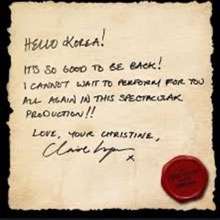 HELLO KOREA!
IT'S SO GOOD TO BE BACK!
I CANNOT WAIT TO PERFORM FOR YOU
ALL AGAIN IN THIS SPECTACULAR
PRODUCTION!!
LOVE, YOUR CHRISTINE,
Claire
x